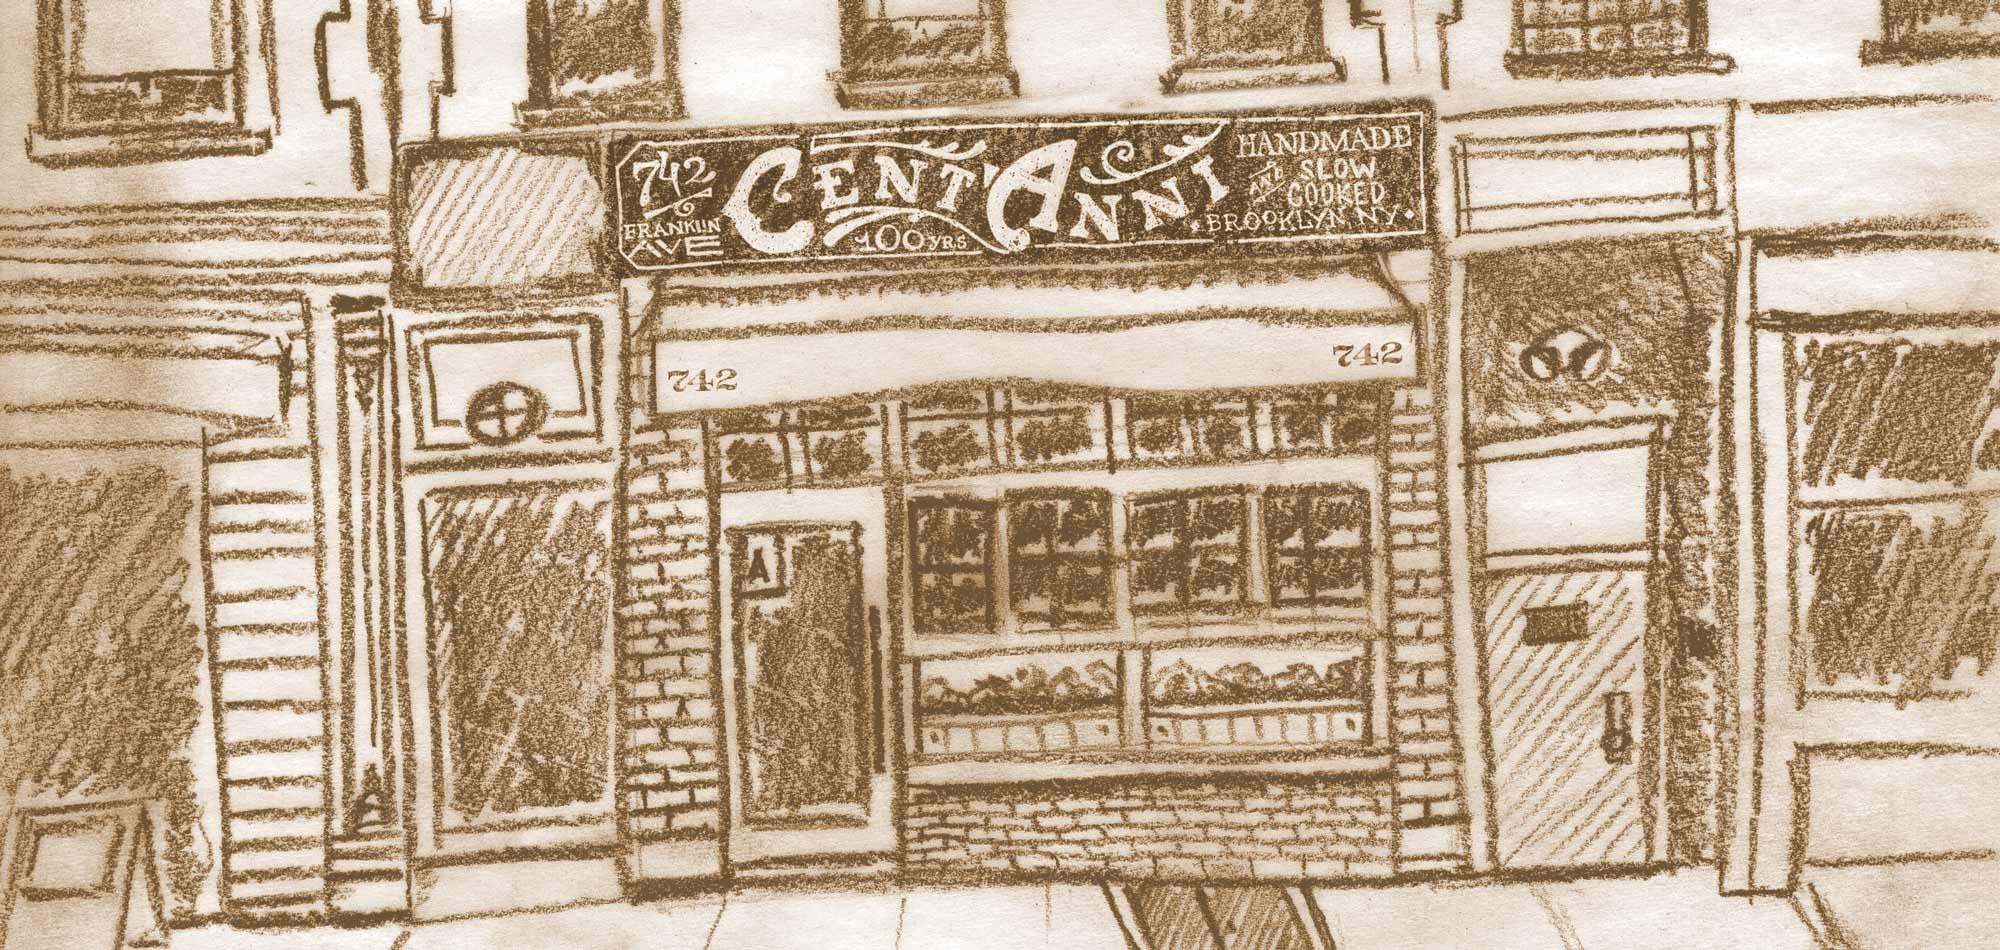 742
FRANKLIN
AVE
CENT'ANNI
100 YRS
HANDMADE
AND SLOW
COOKED
BROOKLYN NY
742
742
A